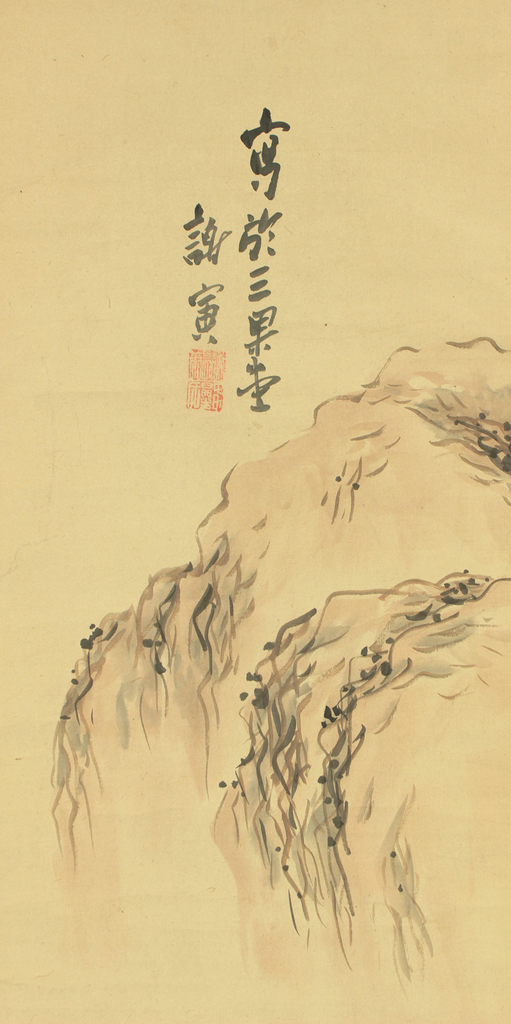 寫於三果堂
謝寅